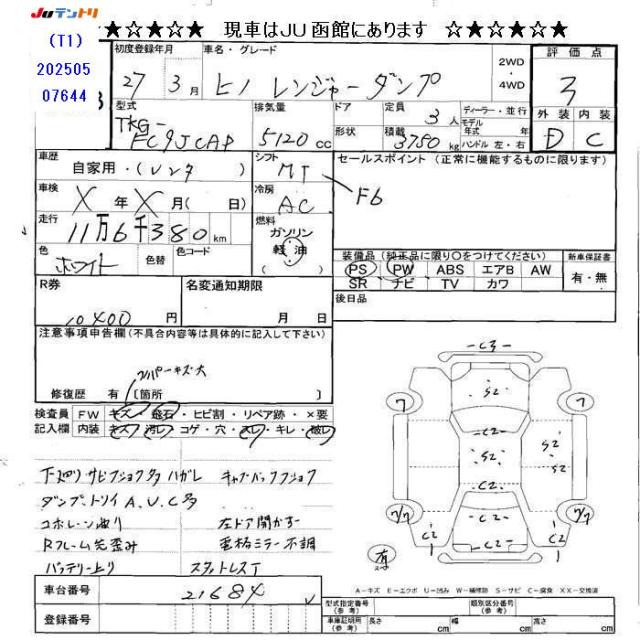 JUテントリ
★☆★☆★ 現車はJU函館にあります ★☆★☆★☆★
(T1)
202505
07644
初度登録年月
27 3月
車名・グレード
ヒノ レンジャーダンプ
2WD
・
4WD
評価点
3
外装 内装
D C
型式
TKG-
FC9JCAP
排気量
5120 cc
ドア
形状
定員 3 人
積載 3750 kg
ディーラー・並行
モデル
年式 年
ハンドル 左・右
車歴 自家用・(レンタ )
シフト MT
F6
セールスポイント (正常に機能するものに限ります)
車検 X 年 X 月( 日)
冷房 AC
走行 11万6千380km
燃料
ガソリン
軽油
色 ホワイト
色替
色コード
( )
装備品 (純正品に限り〇をつけてください)
新車保証書
PS PW ABS エアB AW
有・無
SR ナビ TV カワ
後日品
R券
10400 円
名変通知期限
月 日
注意事項申告欄(不具合内容等は具体的に記入して下さい)
修復歴 有 [箇所 ]
検査員 FW キズ・飛石・ヒビ割・リペア跡・×要
記入欄 内装 キズ・汚レ・コゲ・穴・スレ・キレ・破レ
下廻りサビフショク多 ハガレ キャブバックフショク
ダンプ、トリイ A、U、C多
コボレーン曲り 左ドア開かず
Rフレーム先歪み 電格ミラー不調
バッテリー上り スタットレスT
C3
S2
C2
S2
S2 S2
C2
C2
C2 C2
C2
7 7
7/7 7/7
有
車台番号 21684
登録番号
A-キズ E-エクボ U-凹み W-補修跡 S-サビ C-腐食 XX-交換済
型式指定番号
(参考)
類別区分番号
(参考)
車庫証明用
(参考)
長さ cm 幅 cm 高さ cm